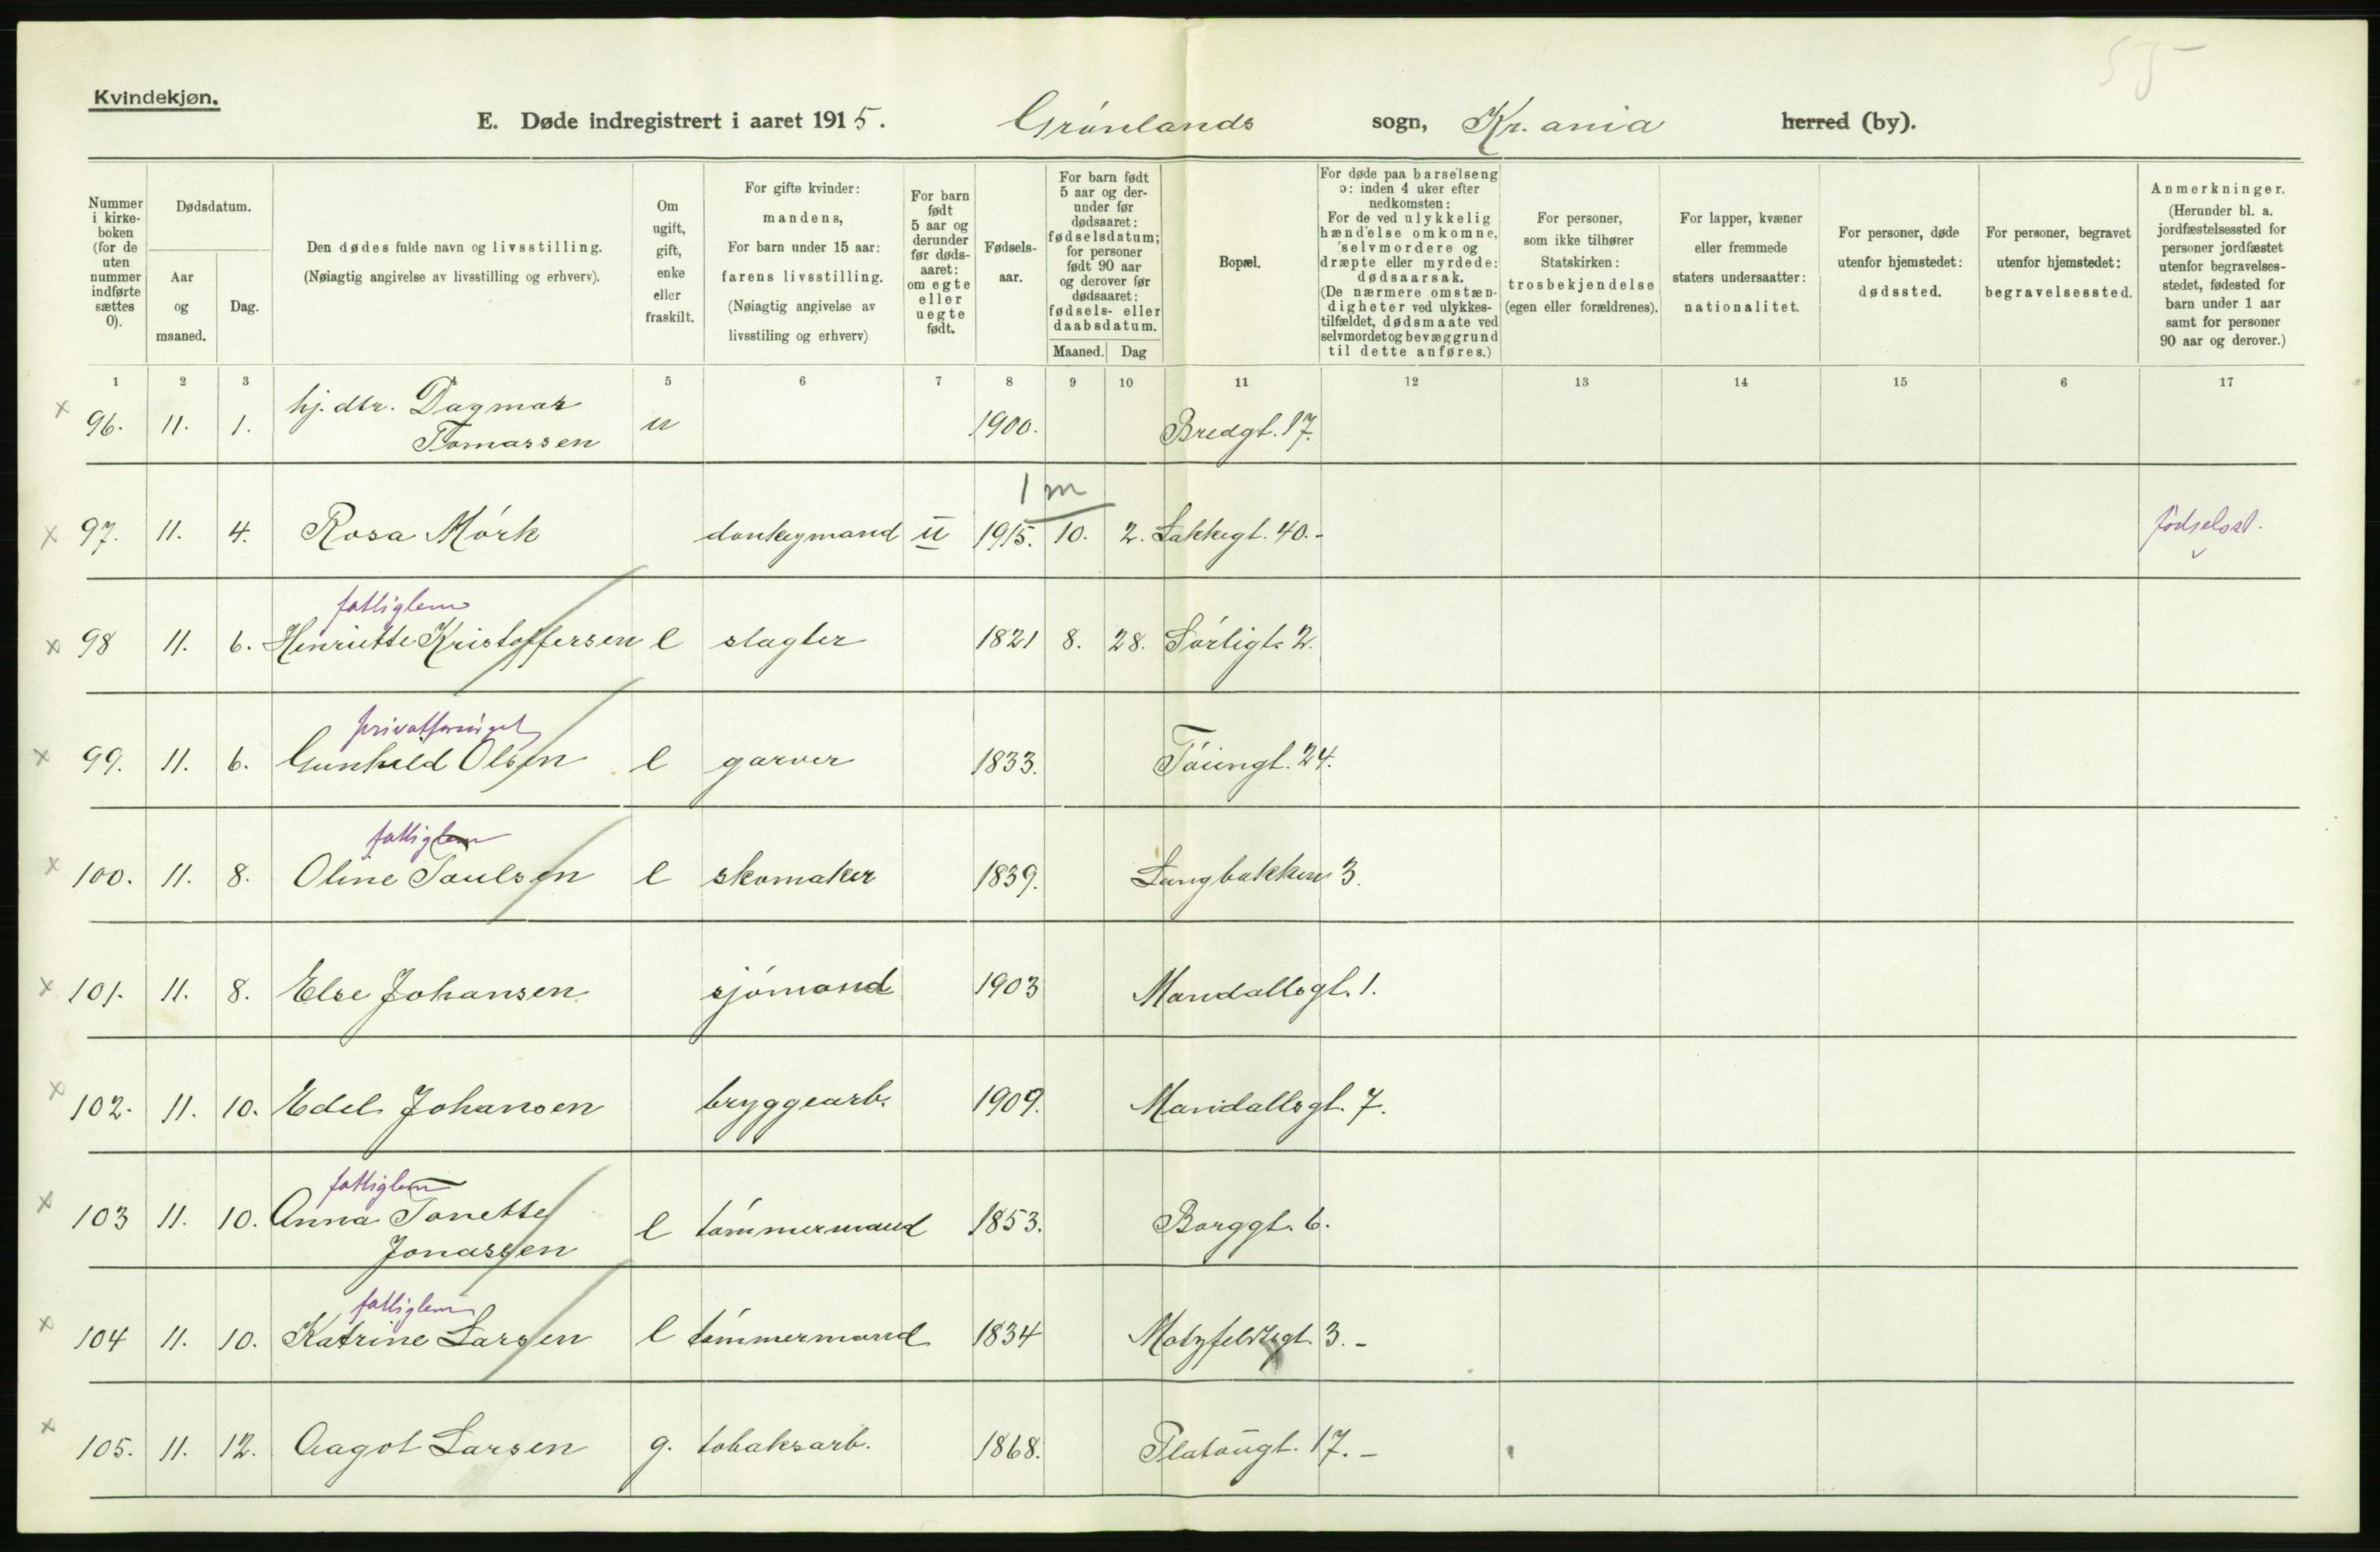 55
Kvindekjøn.
E. Døde indregistrert i aaret 1915. Grønlands sogn, Kr.ania herred (by).
Nummer i kirkeboken (for de uten nummer indførte sættes 0).
Dødsdatum.
Aar og maaned.
Dag.
Den dødes fulde navn og livsstilling. (Nøiagtig angivelse av livsstilling og erhverv).
Om ugift, gift, enke eller fraskilt.
For gifte kvinder: mandens, For barn under 15 aar: farens livsstilling. (Nøiagtig angivelse av livsstiling og erhverv)
For barn født 5 aar og derunder før dødsaaret: om egte eller uegte født.
Fødselsaar.
For barn født 5 aar og derunder før dødsaaret: fødselsdatum; for personer født 90 aar og derover før dødsaaret: fødsels- eller daabsdatum.
Maaned. Dag
Bopæl.
For døde paa barselseng ɔ: inden 4 uker efter nedkomsten: For de ved ulykkelig hændelse omkomne, selvmordere og dræpte eller myrdede: dødsaarsak. (De nærmere omstændigheter ved ulykkestilfældet, dødsmaate ved selvmordet og bevæggrund til dette anføres.)
For personer, som ikke tilhører Statskirken: trosbekjendelse (egen eller forældrenes).
For lapper, kvæner eller fremmede staters undersaatter: nationalitet.
For personer, døde utenfor hjemstedet: dødssted.
For personer, begravet utenfor hjemstedet: begravelsessted.
Anmerkninger. (Herunder bl. a. jordfæstelsessted for personer jordfæstet utenfor begravelsesstedet, fødested for barn under 1 aar samt for personer 90 aar og derover.)
1 2 3 5 6 7 8 9 10 11 12 13 14 15 6 17
x 96. 11. 1. hj. dtr. Dagmar Tomassen u 1900. Bredgt. 17.
1 m
x 97. 11. 4. Rosa Mørk donkeymand u 1915. 10. 2. Lakkegt. 40.- fødselsst.
fattiglem
x 98 11. 6. Henriette Kristoffersen e slagter 1821 8. 28. Sørligt. 2.
privatforsørget
x 99. 11. 6. Gunhild Olsen e garver 1833. Tøiengt. 24.
fattiglem
x 100. 11. 8. Oline Paulsen e skomaker 1839. Langbakken 3.
x 101. 11. 8. Else Johansen sjømand 1903 Mandallsgt. 1.
x 102. 11. 10. Edel Johansen bryggearb. 1909. Mandallsgt. 7.
fattiglem
x 103 11. 10. Anna Tonette Jonassen e tømmermand 1853. Borggt. 6.
fattiglem
x 104 11. 10. Katrine Larsen e tømmermand 1834 Motzfeldtsgt. 3.-
x 105. 11. 12. Aagot Larsen g. tobaksarb. 1868. Platougt. 17.-